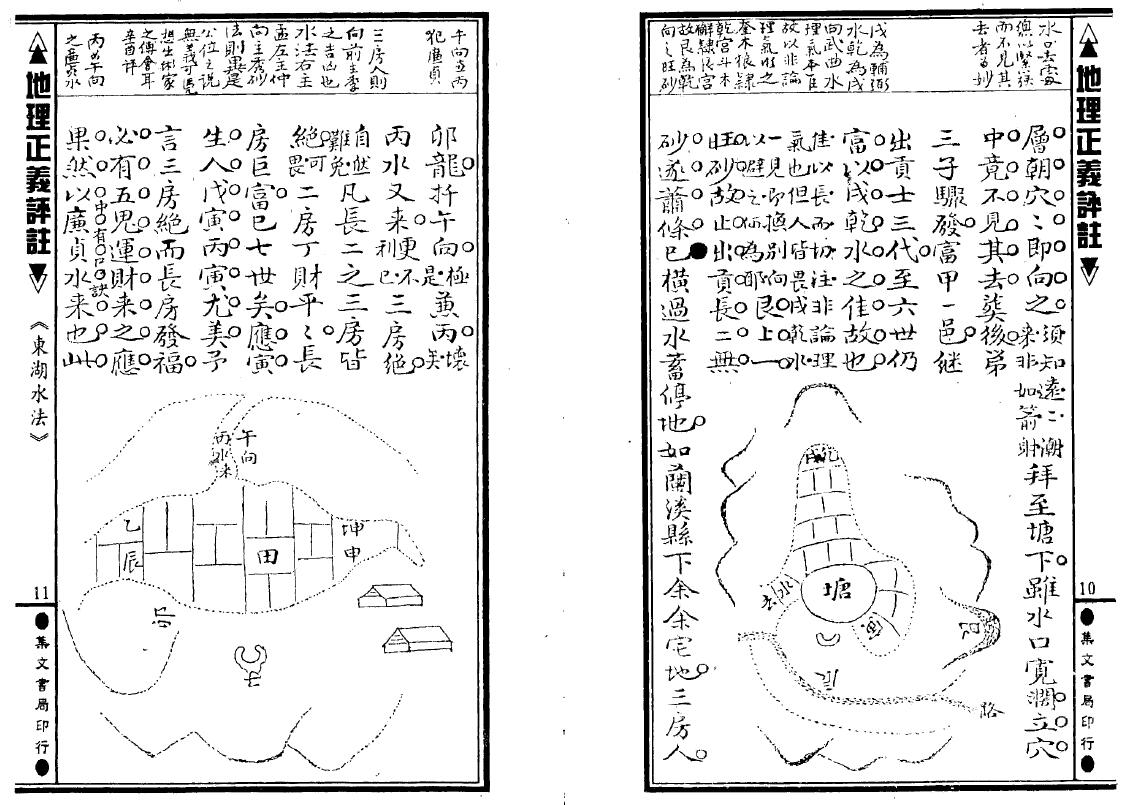 地理正義評註
10
集文書局印行
水口去處
須以緊狹
而不見其
去者為妙
戌為輔弼
水乾為戌
向武曲水
理氣本佳
故以非論
理氣水之
奎木狼隸
乾宮斗木
獬隸艮宮
故艮為乾
向之旺砂
層朝穴〻即向之須知遠〻潮來非如箭射拜至塘下雖水口寬濶立穴
中竟不見其去葬後弟
三子驟發富甲一邑繼
出貢士三代至六世仍
富以戌乾水之佳故也
佳以長而切注非論理氣也但人皆畏戌乾水
一見即換別向艮上一以避之何為耶
旺砂故止出貢長二無
砂遂蕭條已●橫過水蓄停地如蘭溪縣下余余宅地三房人
塘
水
去
路
地理正義評註
《東湖水法》
11
集文書局印行
午向兼丙
犯廉貞
三房人則
向前主季
之吉凶也
水法右主
孟左主仲
向主秀砂
法則
公位之說
之傳會耳
辛酉評
丙的午向
之廉貞水
卯龍扦午向極是兼丙壞矣
丙水又來更不利已三房絕
自然難免凡長二之三房皆
絕可畏二房丁財平〻長
房巨富已七世矣應寅
生人戊寅丙寅尤美予
言三房絕而長房發福
必有五鬼運財來之應
果然中有口訣以廉貞水來也此
午向
丙水來
乙
辰
田
坤
申